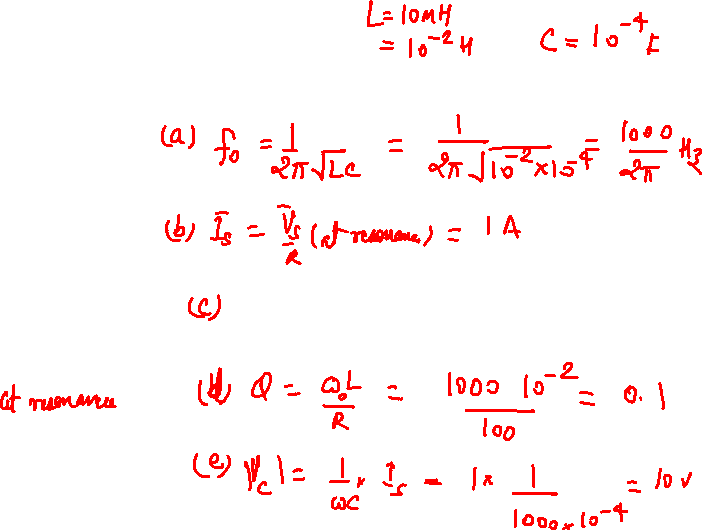 L = 10mH
= 10^-2 H    C = 10^-4 F
(a) f0 = 1/(2π√LC) = 1/(2π√(10^-2 × 10^-4)) = 1000/2π Hz
(b) Is = Vs/R (at resonance) = 1A
(c)
at resonance (d) Q = ω0L/R = 1000 10^-2/100 = 0.1
(e) |Vc| = 1/ωC × Is = 1 × 1/(1000 × 10^-4) = 10 V